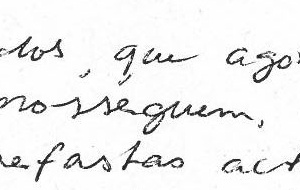 dos, que agor
prosseguem,
efastas act